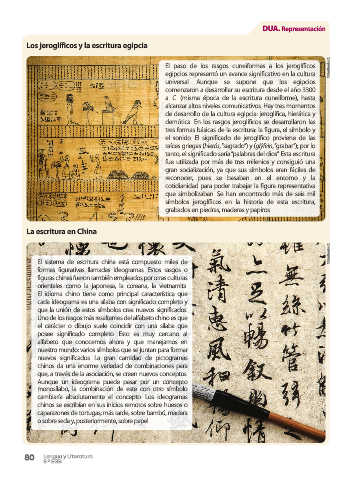 DUA. Representación
Los jeroglíficos y la escritura egipcia
El paso de los rasgos cuneiformes a los jeroglíficos
egipcios representó un avance significativo en la cultura
universal. Aunque se supone que los egipcios
comenzaron a desarrollar su escritura desde el año 3300
a. C. (misma época de la escritura cuneiforme), hasta
alcanzar altos niveles comunicativos. Hay tres momentos
de desarrollo de la cultura egipcia: jeroglífica, hierática y
demótica. En los rasgos jeroglíficos se desarrollaron las
tres formas básicas de la escritura: la figura, el símbolo y
el sonido. El significado de jeroglífico proviene de las
raíces griegas (hierós, "sagrado") y (glýfein, "grabar"); por lo
tanto, el significado sería "palabras del dios". Esta escritura
fue utilizada por más de tres milenios y consiguió una
gran socialización, ya que sus símbolos eran fáciles de
reconocer, pues se basaban en el entorno y la
cotidianidad para poder trabajar la figura representativa
que simbolizaban. Se han encontrado más de seis mil
símbolos jeroglíficos en la historia de esta escritura,
grabados en piedras, maderas y papiros.
La escritura en China
El sistema de escritura china está compuesto miles de
formas figurativas llamadas ideogramas. Estos rasgos o
figuras chinas fueron también empleados por otras culturas
orientales como la japonesa, la coreana, la vietnamita.
El idioma chino tiene como principal característica que
cada ideograma es una sílaba con significado completo y
que la unión de estos símbolos crea nuevos significados.
Uno de los rasgos más resaltantes del alfabeto chino es que
el carácter o dibujo suele coincidir con una sílaba que
posee significado completo. Esto es muy cercano al
alfabeto que conocemos ahora y que manejamos en
nuestro mundo: varios símbolos que se juntan para formar
nuevos significados. La gran cantidad de pictogramas
chinos da una enorme variedad de combinaciones para
que, a través de la asociación, se creen nuevos conceptos.
Aunque un ideograma puede pasar por un concepto
monosílabo, la combinación de este con otro símbolo
cambiaría absolutamente el concepto. Los ideogramas
chinos se escribían en sus inicios remotos sobre huesos o
caparazones de tortugas; más tarde, sobre bambú, madera
o sobre seda y, posteriormente, sobre papel.
氣清
惠風
仰
足
暢叙
情
80
Lengua y Literatura